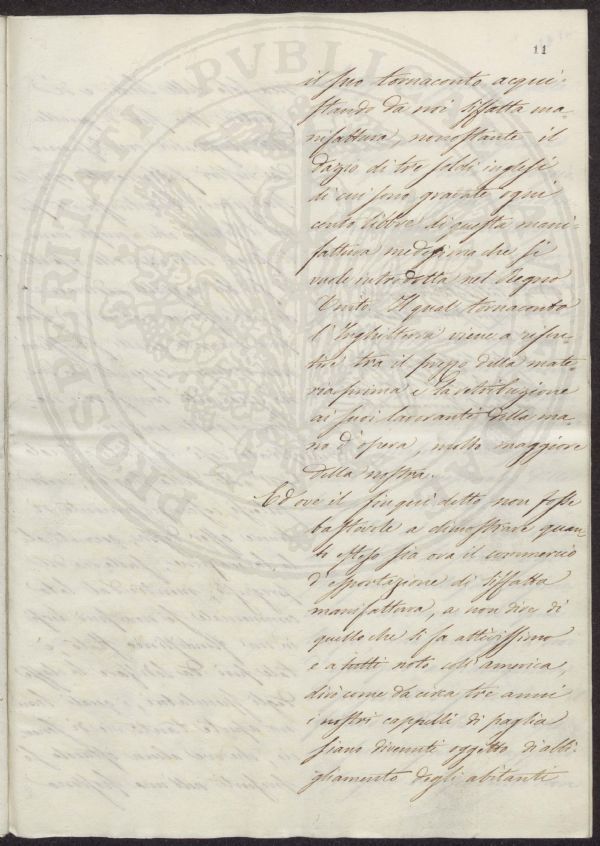 11
il suo tornaconto acqui-
stando da noi siffatta ma-
nifattura, nonostante il
dazio di tre soldi inglesi
di cui sono gravate ogni
cento libbre di questa mani-
fattura medesima che si
vuole introdotta nel Regno
Unito. Il qual tornaconto
l'Inghilterra viene a risen-
tire tra il prezzo della mate-
ria prima e la retribuzione
ai suoi lavoranti della ma-
no d'opera, molto maggiore
della nostra.
Ed ove il sin qui detto non fosse
bastevole a dimostrare quan-
to esteso sia ora il commercio
d'esportazione di siffatta
manifattura, a non dire di
quello che si fa attivissimo
e a tutti noto coll'america,
dirò come da circa tre anni
i nostri cappelli di paglia
siano divenuti oggetto d'abbi-
gliamento degli abitanti
PROSPERITATI PVBLICAE